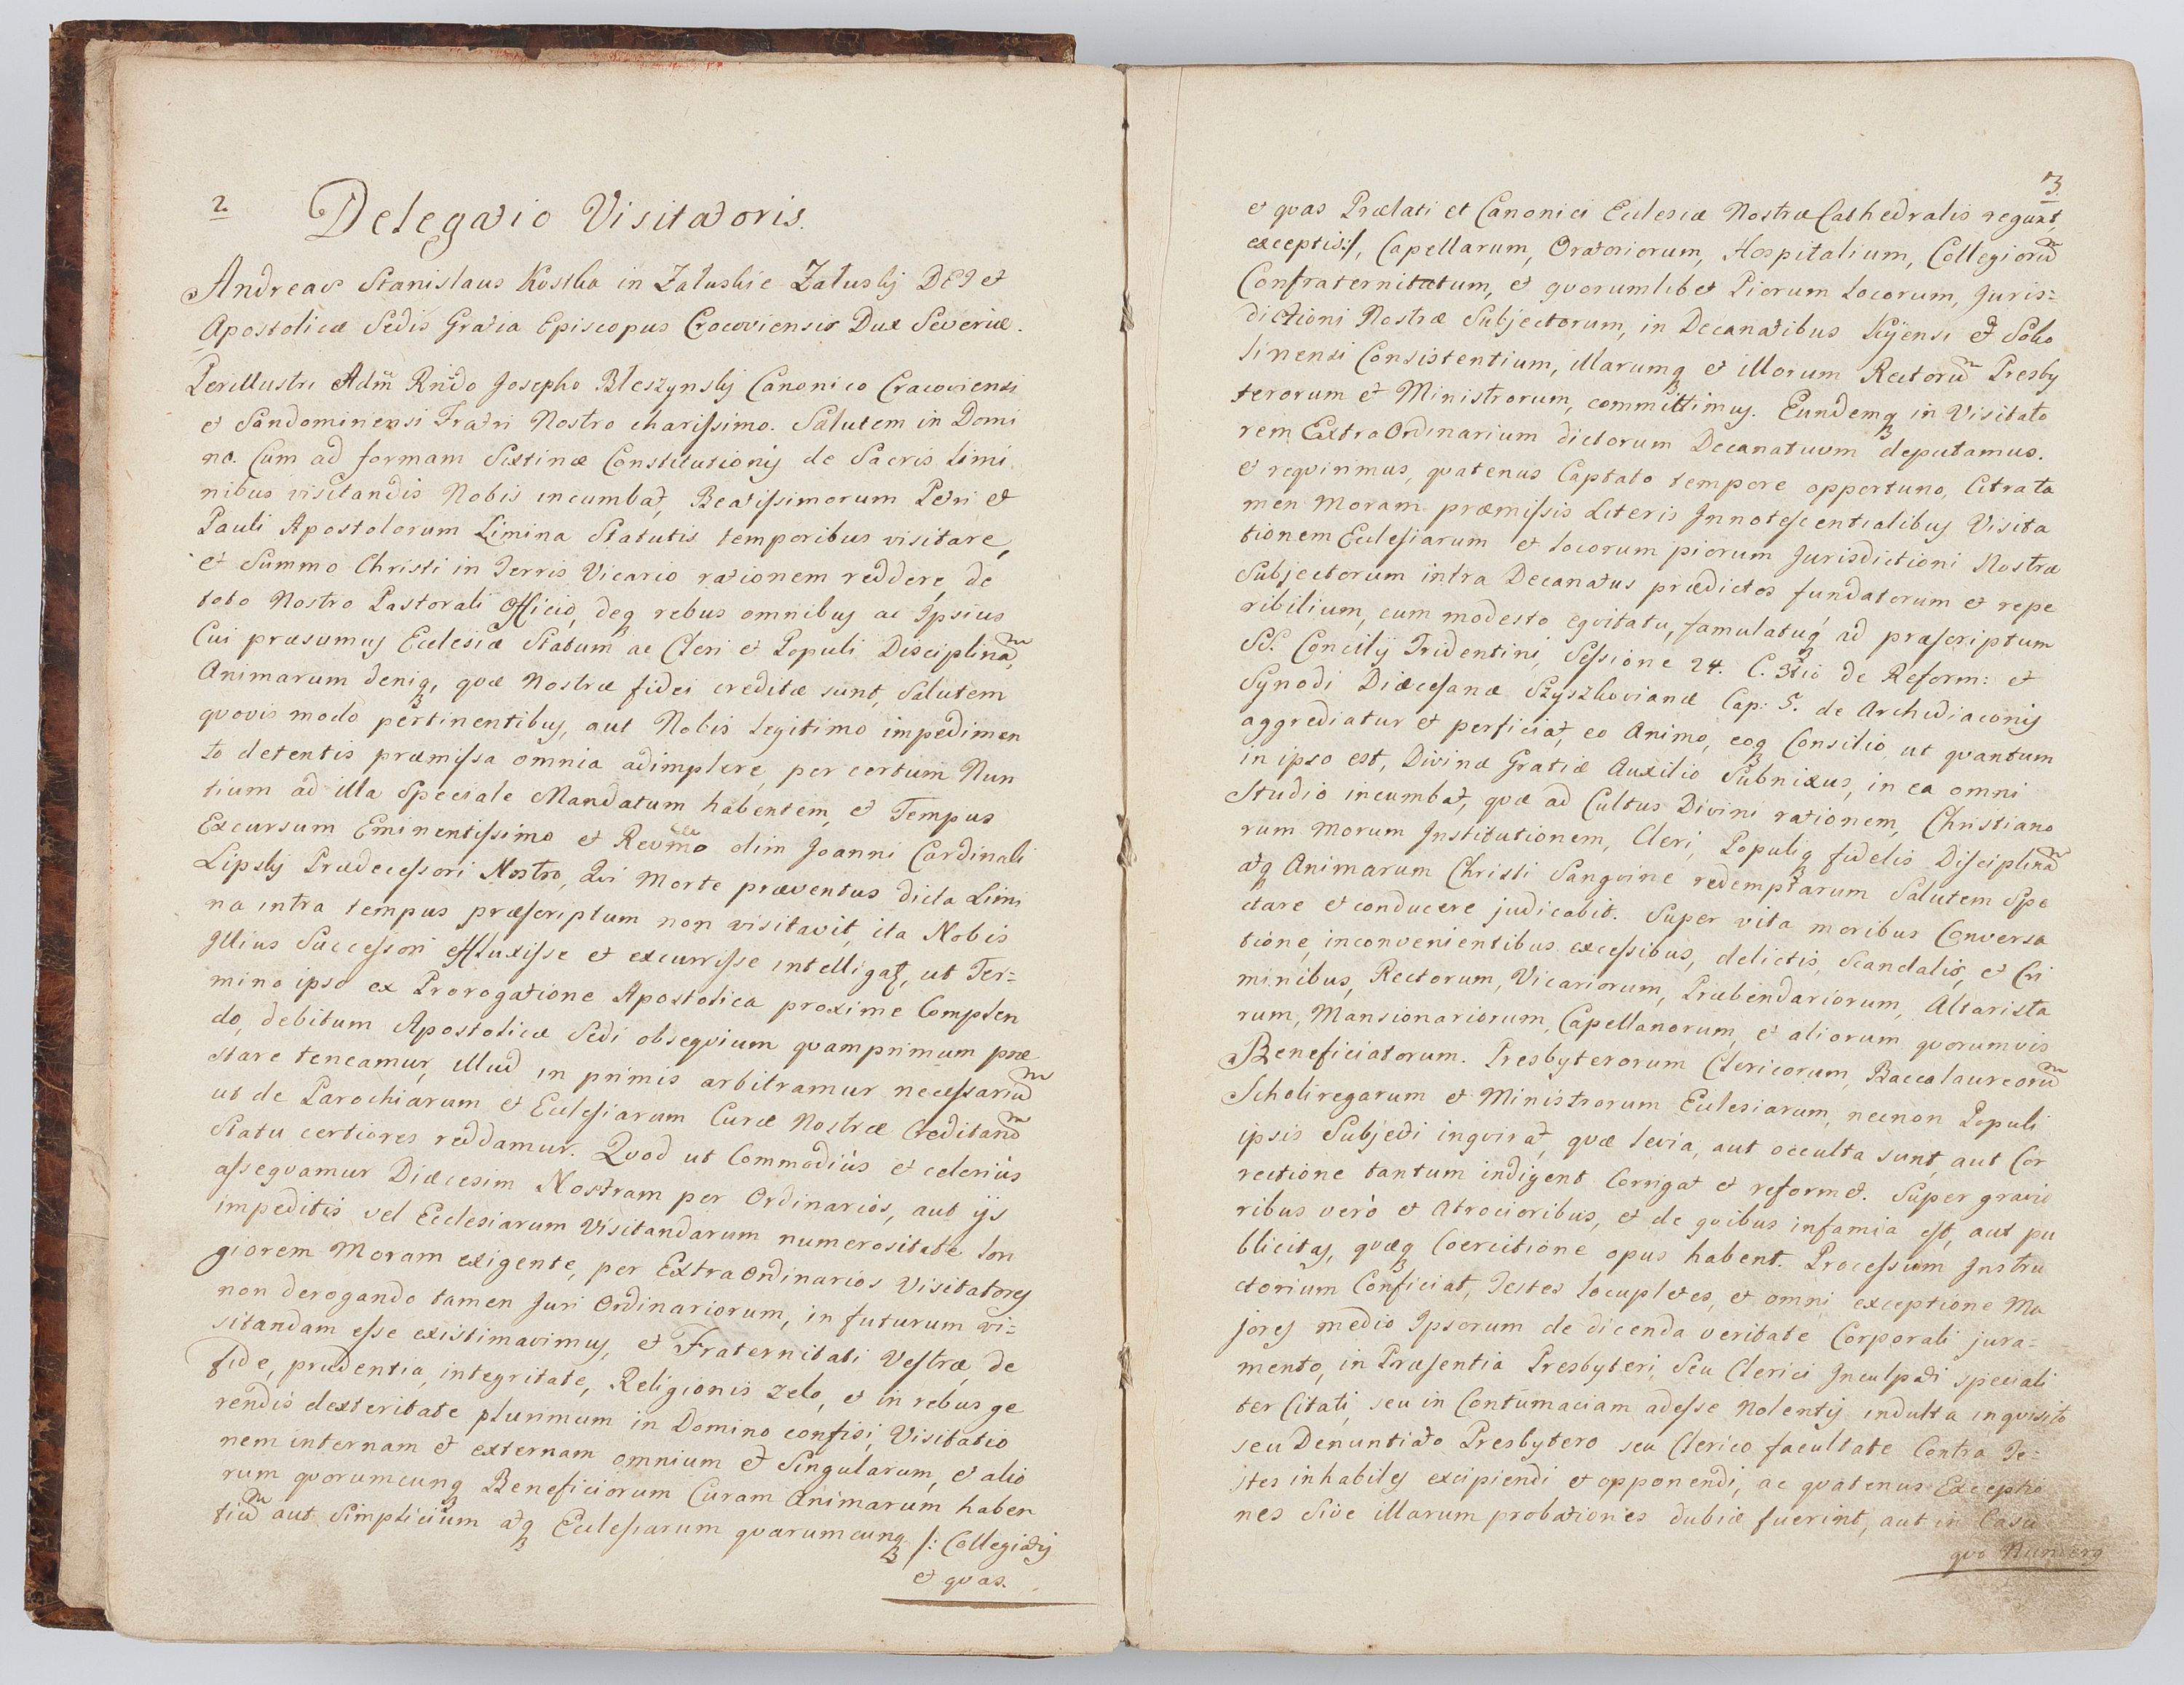 2.
Delegatio Visitatoris.
Andreas Stanislaus Kostka in Załuskie Załuskij DEI et
Apostolicæ Sedis Gratia Episcopus Cracoviensis Dux Severiæ.
Perillustri Adm̃ Rñdo Josepho Błeszynskij Canonico Cracoviensi
et Sandominensi Fratri Nostro charissimo. Salutem in Domi
no. Cum ad formam Sixtinæ Constitutionis de Sacris Limi
nibus visitandis Nobis incumbat, Beatissimorum Petri et
Pauli Apostolorum Limina Statutis temporibus visitare,
et Summo Christi in Terris Vicario rationem reddere, de
toto Nostro Pastorali Officio, deq3 rebus omnibus ac Ipsius
Cui præsumus Ecclesiæ Statum ac Cleri et Populi Disciplinam̃,
Animarum deniq3, quæ Nostræ fidei creditæ sunt, Salutem
quovis modo pertinentibus, aut Nobis legitimo impedimen
to detentis præmissa omnia adimplere, per certum Nun
tium ad illa Speciale Mandatum habentem, et Tempus
Excursum Eminentissimo et Revmo olim Joanni Cardinali
Lipskij Prædecessori Nostro, Qui Morte præventus dicta Limi
na intra tempus præscriptum non visitavit, ita Nobis
Illius Successori effluxisse et excurrisse intelligat, ut Ter=
mino ipso ex Prorogatione Apostolica proxime Complen
do, debitum Apostolicæ Sedi obsequium quamprimum præ
stare teneamur, illud in primis arbitramur necessariũ
ut de Parochiarum et Ecclesiarum Curæ Nostræ Creditarũ
Statu certiores reddamur. Quod ut Commodiùs et celeriùs
assequamur Diæcesim Nostram per Ordinarios, aut ijs
impeditis vel Ecclesiarum Visitandarum numerositate lon
giorem Moram exigente, per ExtraOrdinarios Visitatores
non derogando tamen Juri Ordinariorum, in futurum vi=
sitandam esse existimavimus, et Fraternitati Vestræ, de
fide, prudentia, integritate, Religionis zelo, et in rebus ge
rendis dexteritate plurimum in Domino confisi, Visitatio
nem internam et externam omnium et Singularum, et alio
rum quorumcunq3 Beneficiorum Curam Animarum haben
tiũ aut Simplicium atq3 Ecclesiarum quarumcunq3 /: Collegiatis
et quas.
3
et quas Prælati et Canonici Ecclesiæ Nostræ Cathedralis regunt,
exceptis:/, Capellarum, Oratoriorum, Hospitalium, Collegiorũ
Confraternitatum, et quorumlibet Piorum Locorum, Juris=
dictioni Nostræ Subjectorum, in Decanatibus Kijensi et Soko
linensi Consistentium, illarumq3 et illorum Rectorũ Presby
terorum et Ministrorum, committimus. Eundemq3 in Visitato
rem ExtraOrdinarium dictorum Decanatuum deputamus.
et requirimus, quatenus Captato tempore opportuno, Citra ta
men Moram præmissis Literis Innotescentialibus Visita
tionem Ecclesiarum et Locorum piorum Jurisdictioni Nostræ
Subjectorum intra Decanatus prædictos fundatorum et repe
ribilium, cum modesto equitatu, famulatuq3 ad præscriptum
SS. Concilij Tridentini, Sessione 24. C. 3tio de Reform: et
Synodi Diæcesanæ Szyszkovianæ Cap: 5. de Archidiaconis
aggrediatur et perficiat, eo Animo, eoq3 Consilio, ut quantum
in ipso est, Divinæ Gratiæ Auxilio Subnixus, in ea omni
Studio incumbat, quæ ad Cultus Divini rationem, Christiano
rum Morum Institutionem, Cleri, Populiq3 fidelis Disciplinã
atq3 Animarum Christi Sanguine redemptarum Salutem Spe
ctare et conducere judicabit. Super vita moribus Conversa
tione, inconvenientibus excessibus, delictis, Scandalis, et Cri
minibus, Rectorum, Vicariorum, Præbendariorum, Altarista
rum, Mansionariorum, Capellanorum, et aliorum quorumvis
Beneficiatorum. Presbyterorum Clericorum, Baccalaureorũ
Scholiregarum et Ministrorum Ecclesiarum, necnon Populi
ipsis Subjecti inquirat, quæ levia, aut occulta sunt, aut Cor
rectione tantum indigent Corrigat et reformet. Super gravio
ribus verò et Atrocioribus, et de quibus infamia est, aut pu
blicitas, quæq3 Coercitione opus habent. Processum Instru
ctorium Conficiat, Testes locupletes, et omni exceptione Ma
jores medio Ipsorum de dicenda veritate Corporali jura=
mento, in Præsentia Presbyteri, Seu Clerici Inculpati speciali
ter Citati, seu in Contumaciam adesse Nolentis indulta inquisito
seu Denuntiato Presbytero seu Clerico facultate Contra Te=
stes inhabiles excipiendi et opponendi, ac quatenus Exceptio
nes Sive illarum probationes dubiæ fuerint, aut in Casu
quo Numerq